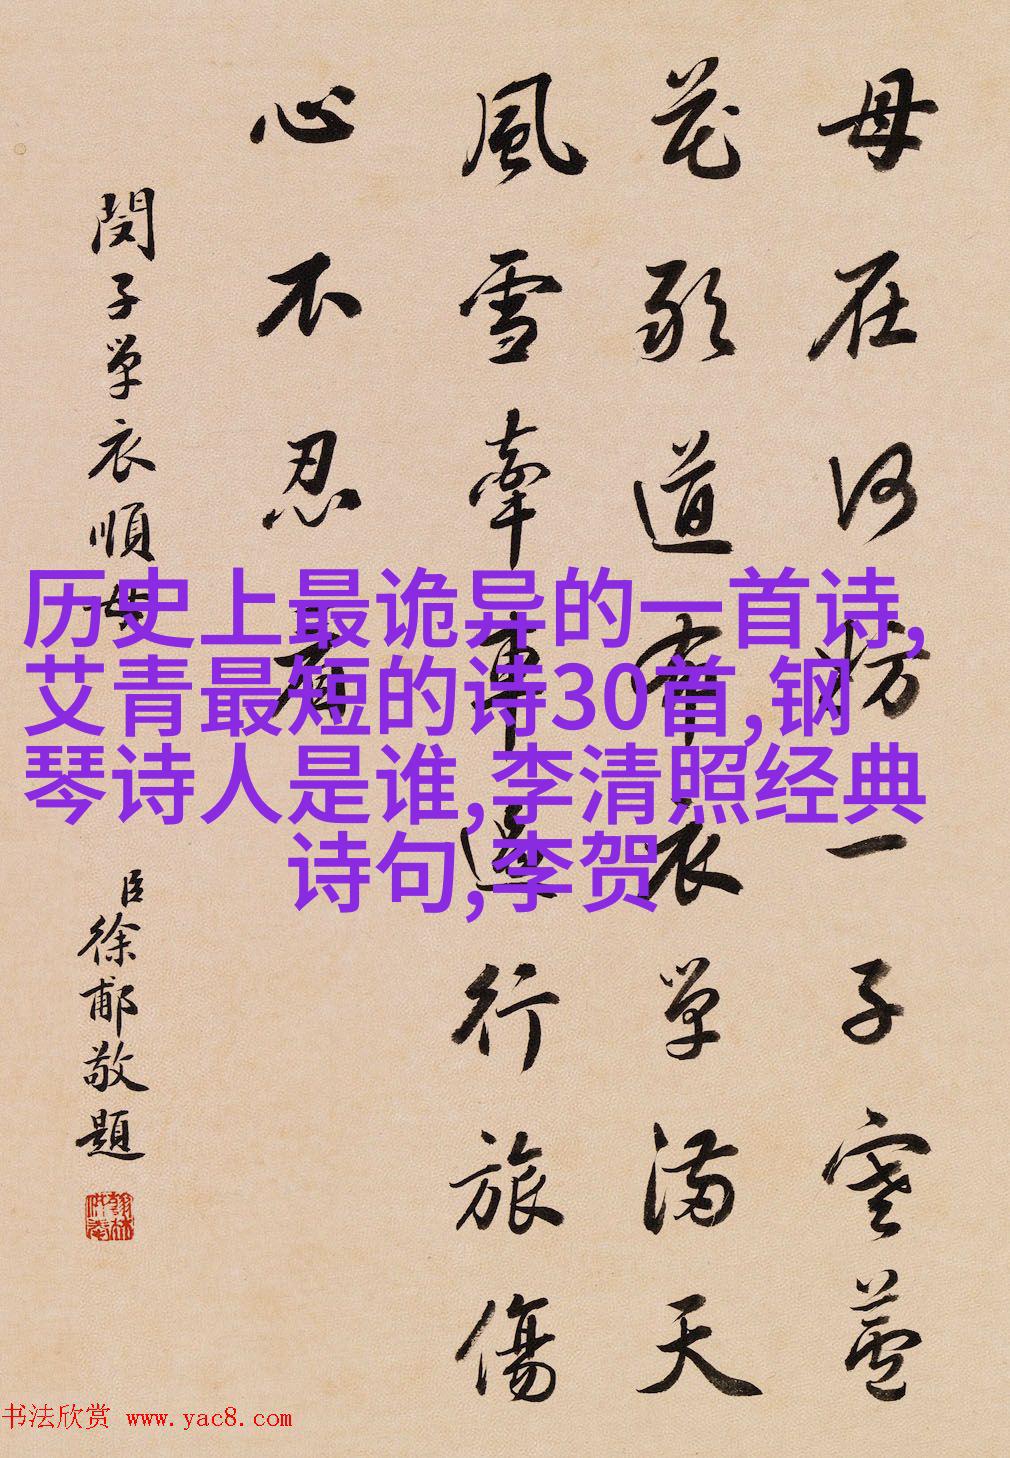 母在何妨一子寒蘆
花敢道布衣單滿天
風雪牽車過行旅傷
心不忍看
閔子單衣順母
臣徐郙敬題
历史上最诡异的一首诗,
艾青最短的诗30首,钢
琴诗人是谁,李清照经典
诗句,李贺
书法欣赏 www.yac8.com